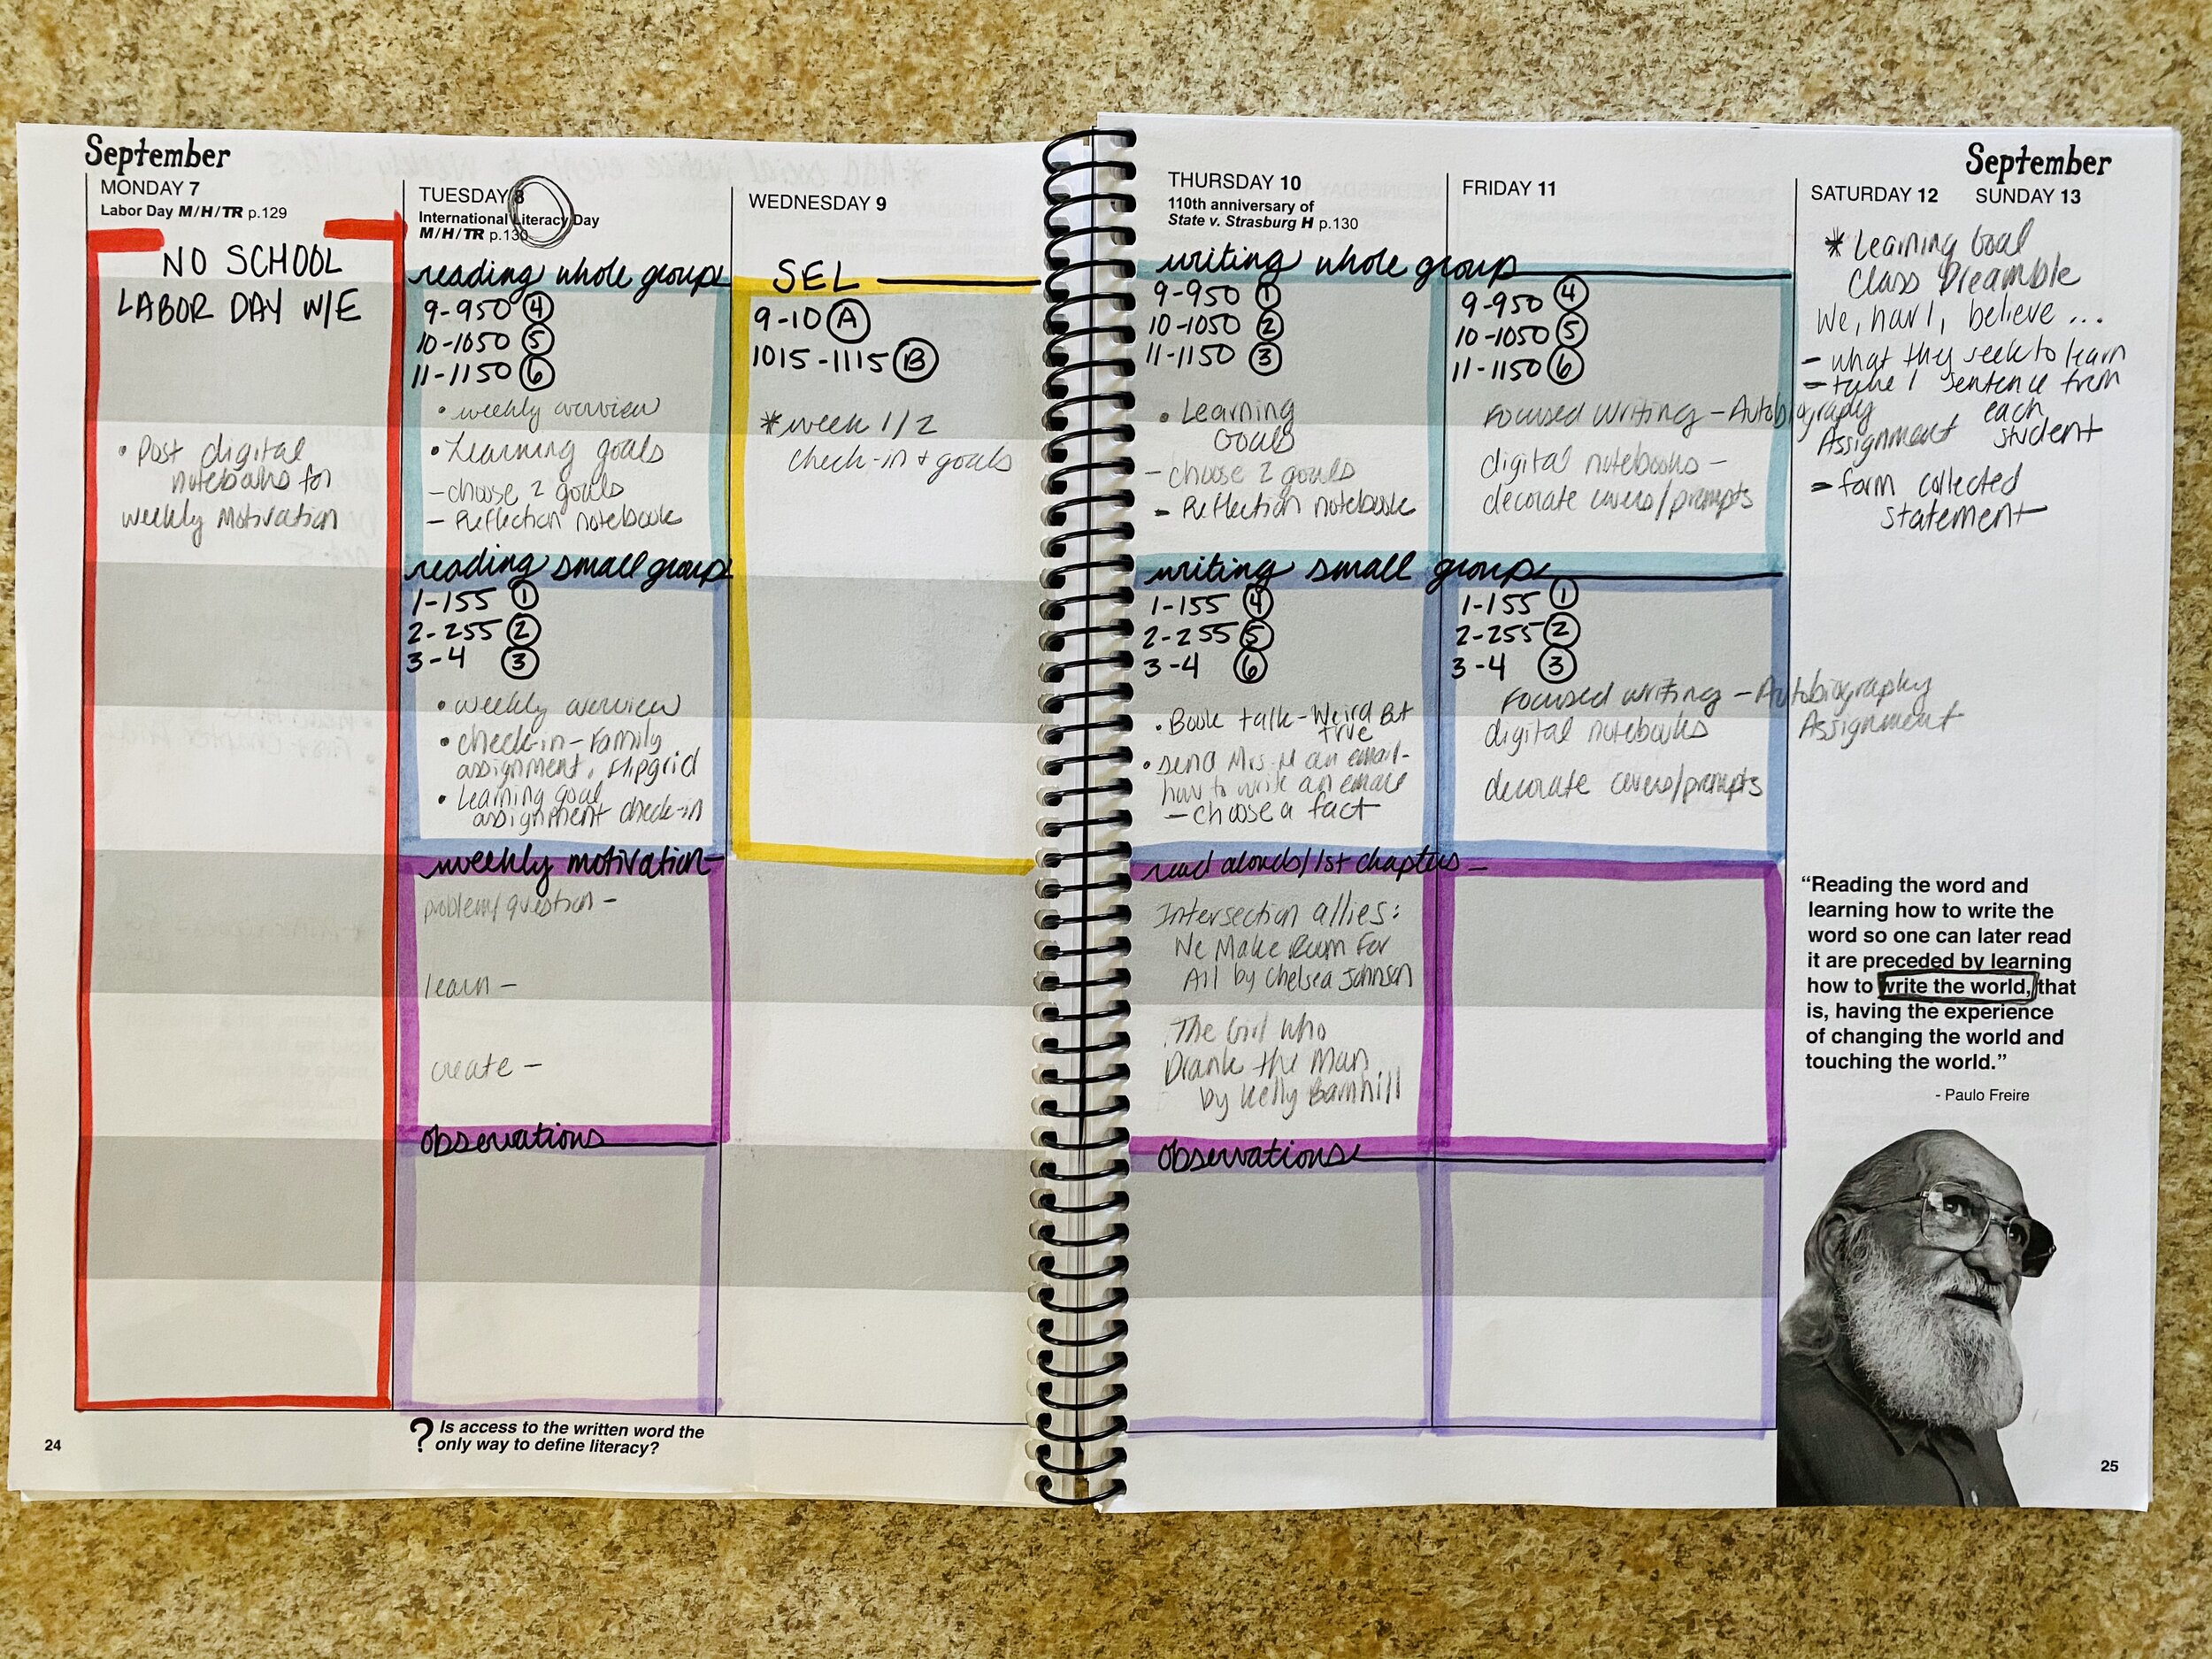 September
MONDAY 7
Labor Day M/H/TR p.129
NO SCHOOL
LABOR DAY W/E
• Post digital
notebooks for
weekly motivation
TUESDAY 8
International Literacy Day
M/H/TR p.130
reading whole group
9-950 4
10-1050 5
11-1150 6
• weekly overview
• Learning goals
- choose 2 goals
- Reflection notebook
reading small group
1-155 1
2-255 2
3-4 3
• weekly overview
• check-in - Family
assignment, flipgrid
• Learning goal
assignment check-in
weekly motivation-
problem/question -
learn -
create -
observations
? Is access to the written word the
only way to define literacy?
24
WEDNESDAY 9
SEL
9-10 A
1015-1115 B
* week 1/2
check-in + goals
September
THURSDAY 10
110th anniversary of
State v. Strasburg H p.130
writing whole group
9-950 1
10-1050 2
11-1150 3
• Learning
Goals
- choose 2 goals
- Reflection notebook
writing small group
1-155 4
2-255 5
3-4 6
• Book talk - Weird But
True
• send Mrs. M an email-
how to write an email
- choose a fact
read alouds/1st chapters -
Intersection allies:
We Make Room For
All by Chelsea Johnson
The Girl Who
Drank the Moon
by Kelly Barnhill
observations
FRIDAY 11
9-950 4
10-1050 5
11-1150 6
Focused writing - Autobiography
Assignment
digital notebooks -
decorate covers/prompts
1-155 1
2-255 2
3-4 3
Focused writing - Autobiography
Assignment
digital notebooks
decorate covers/prompts
SATURDAY 12 SUNDAY 13
* Learning Goal
Class Preamble
We, believe ...
- what they seek to learn
- take 1 sentence from
each
student
- form collected
statement
"Reading the word and
learning how to write the
word so one can later read
it are preceded by learning
how to write the world, that
is, having the experience
of changing the world and
touching the world."
- Paulo Freire
25